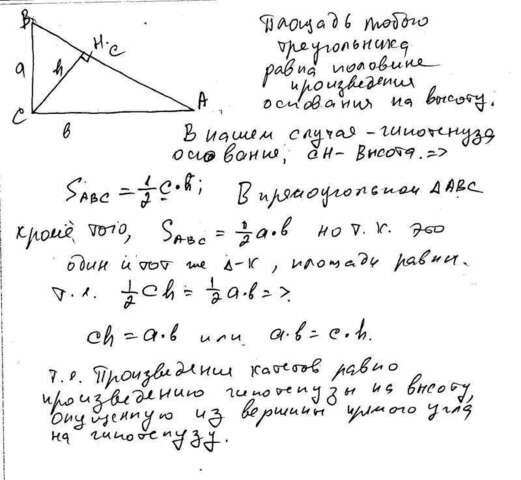 B
H
c
a
h
C
A
в
Площадь любого
треугольника
равна половине
произведения
основания на высоту.
В нашем случае - гипотенуза
основание, CH - высота. =>
S_ABC = 1/2 c·h; В прямоугольном ΔABC
кроме того, S_ABC = 1/2 a·в но т.к. это
один и тот же Δ-к, площади равны.
т.е. 1/2 ch = 1/2 a·в =>
ch = a·в или a·в = c·h.
т.е. Произведение катетов равно
произведению гипотенузы на высоту,
опущенную из вершины прямого угла
на гипотенузу.